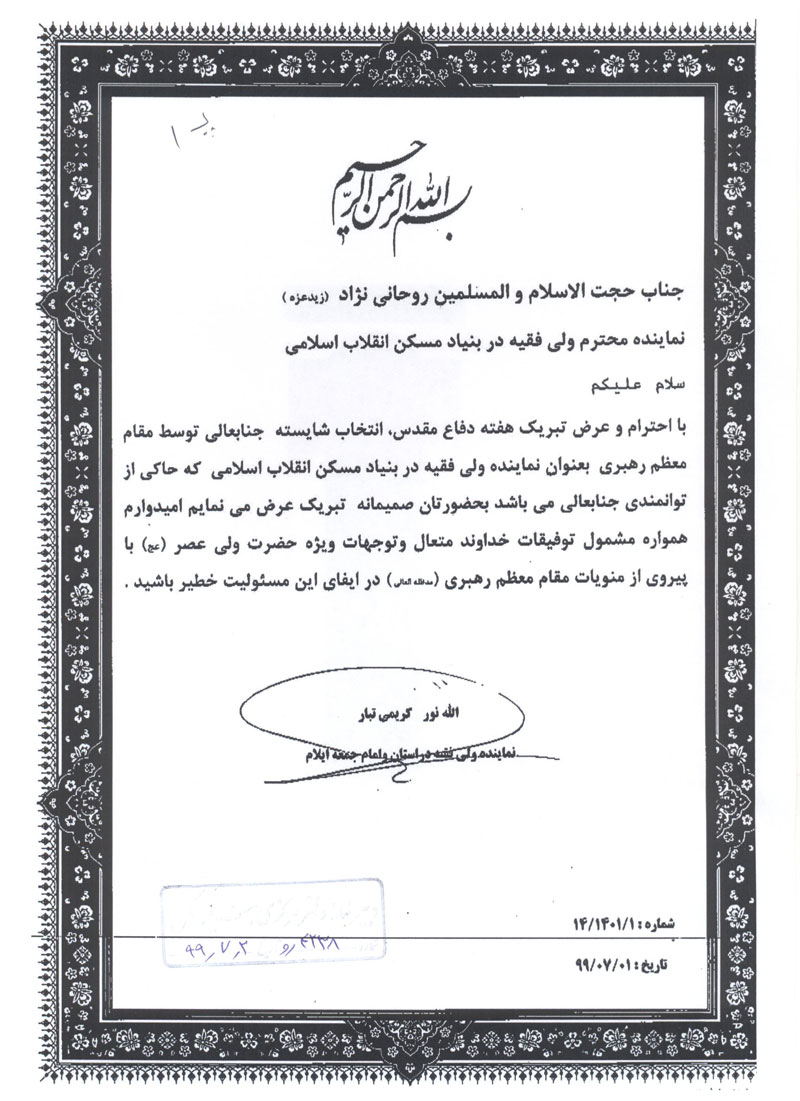 بسم الله الرحمن الرحیم
جناب حجت الاسلام و المسلمین روحانی نژاد (زیدعزه)
نماینده محترم ولی فقیه در بنیاد مسکن انقلاب اسلامی
سلام علیکم
با احترام و عرض تبریک هفته دفاع مقدس، انتخاب شایسته جنابعالی توسط مقام
معظم رهبری بعنوان نماینده ولی فقیه در بنیاد مسکن انقلاب اسلامی که حاکی از
توانمندی جنابعالی می باشد بحضورتان صمیمانه تبریک عرض می نمایم امیدوارم
همواره مشمول توفیقات خداوند متعال وتوجهات ویژه حضرت ولی عصر (عج) با
پیروی از منویات مقام معظم رهبری (مدظله العالی) در ایفای این مسئولیت خطیر باشید .
الله نور کریمی تبار
نماینده ولی فقیه در استان وامام جمعه ایلام
شماره : ۱۴/۱۴۰۱/۱
۴۲۳۸ رو ۹۹٫۷٫۲
تاریخ : ۹۹/۰۷/۰۱